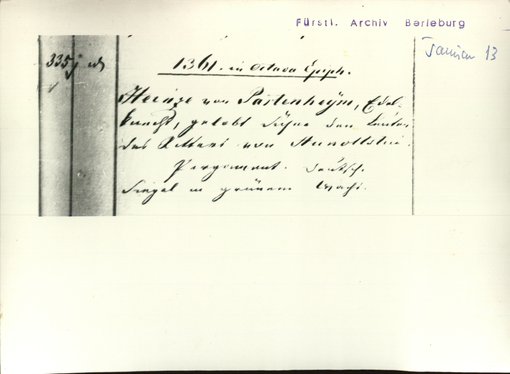 Fürstl. Archiv Berleburg
Januar 13
335
1361. in Octava Epiph.
Heinze von Partenheym, Edel-
knecht, gelobt Sühne den Leuten
des Ritters von
Pergament. Deutsch.
Siegel in grünem Wachs.